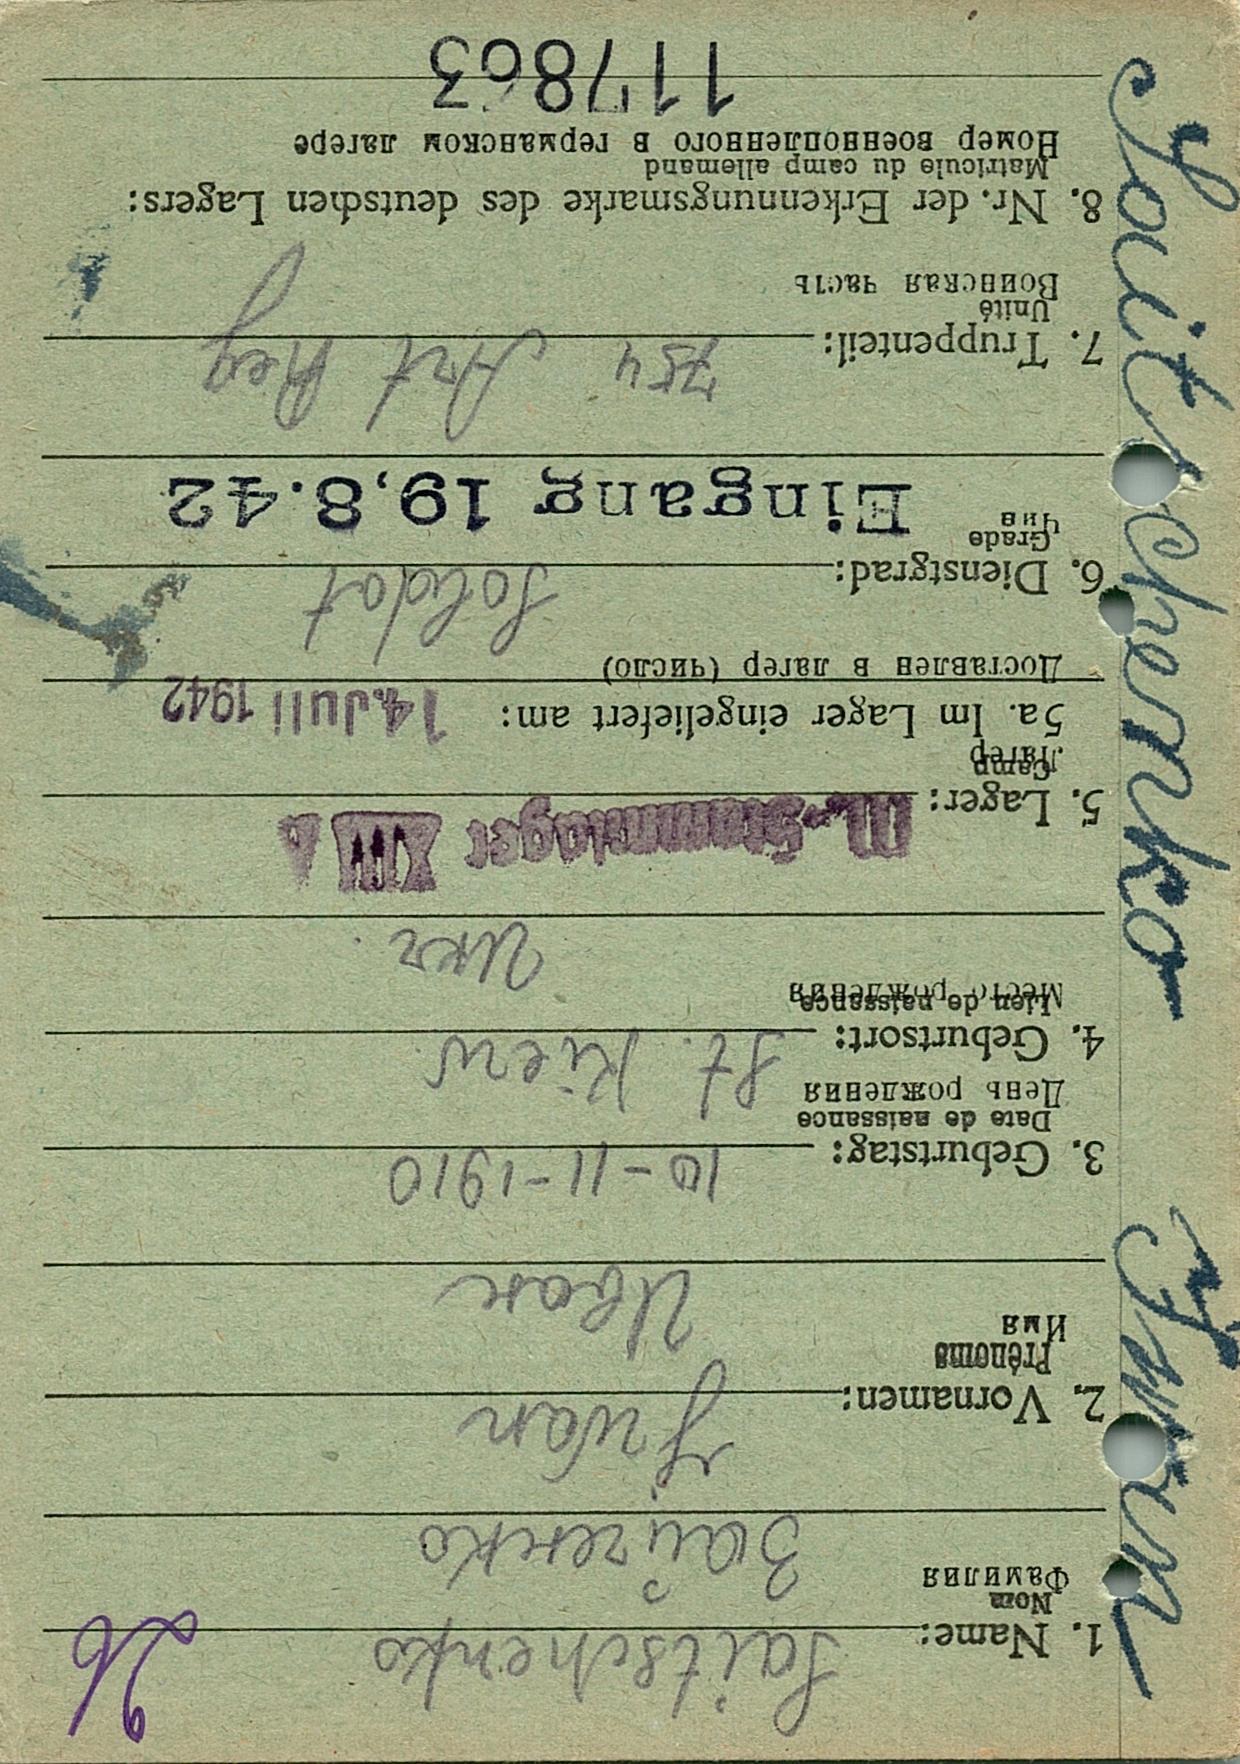 1. Name: Saitschenko
Nom
Фамилия Зайченко
2. Vornamen: Iwan
Prénoms
Имя Иван
3. Geburtstag: 10-11-1910
Date de naissance
День рождения
4. Geburtsort: St. Kiew.
Lieu de naissance
Место рождения Укр.
5. Lager: M.-Stammlager XIII
Camp
Лагерь
5a. Im Lager eingeliefert am: 14. Juli 1942
Доставлен в лагер (число)
6. Dienstgrad: Soldat
Grade
Чин
Eingang 19.8.42
7. Truppenteil: 754 Art Reg
Unité
Воинская часть
8. Nr. der Erkennungsmarke des deutschen Lagers:
Matricule du camp allemand
Номер военнопленного в германском лагере
117863
Saitschenko Iwan